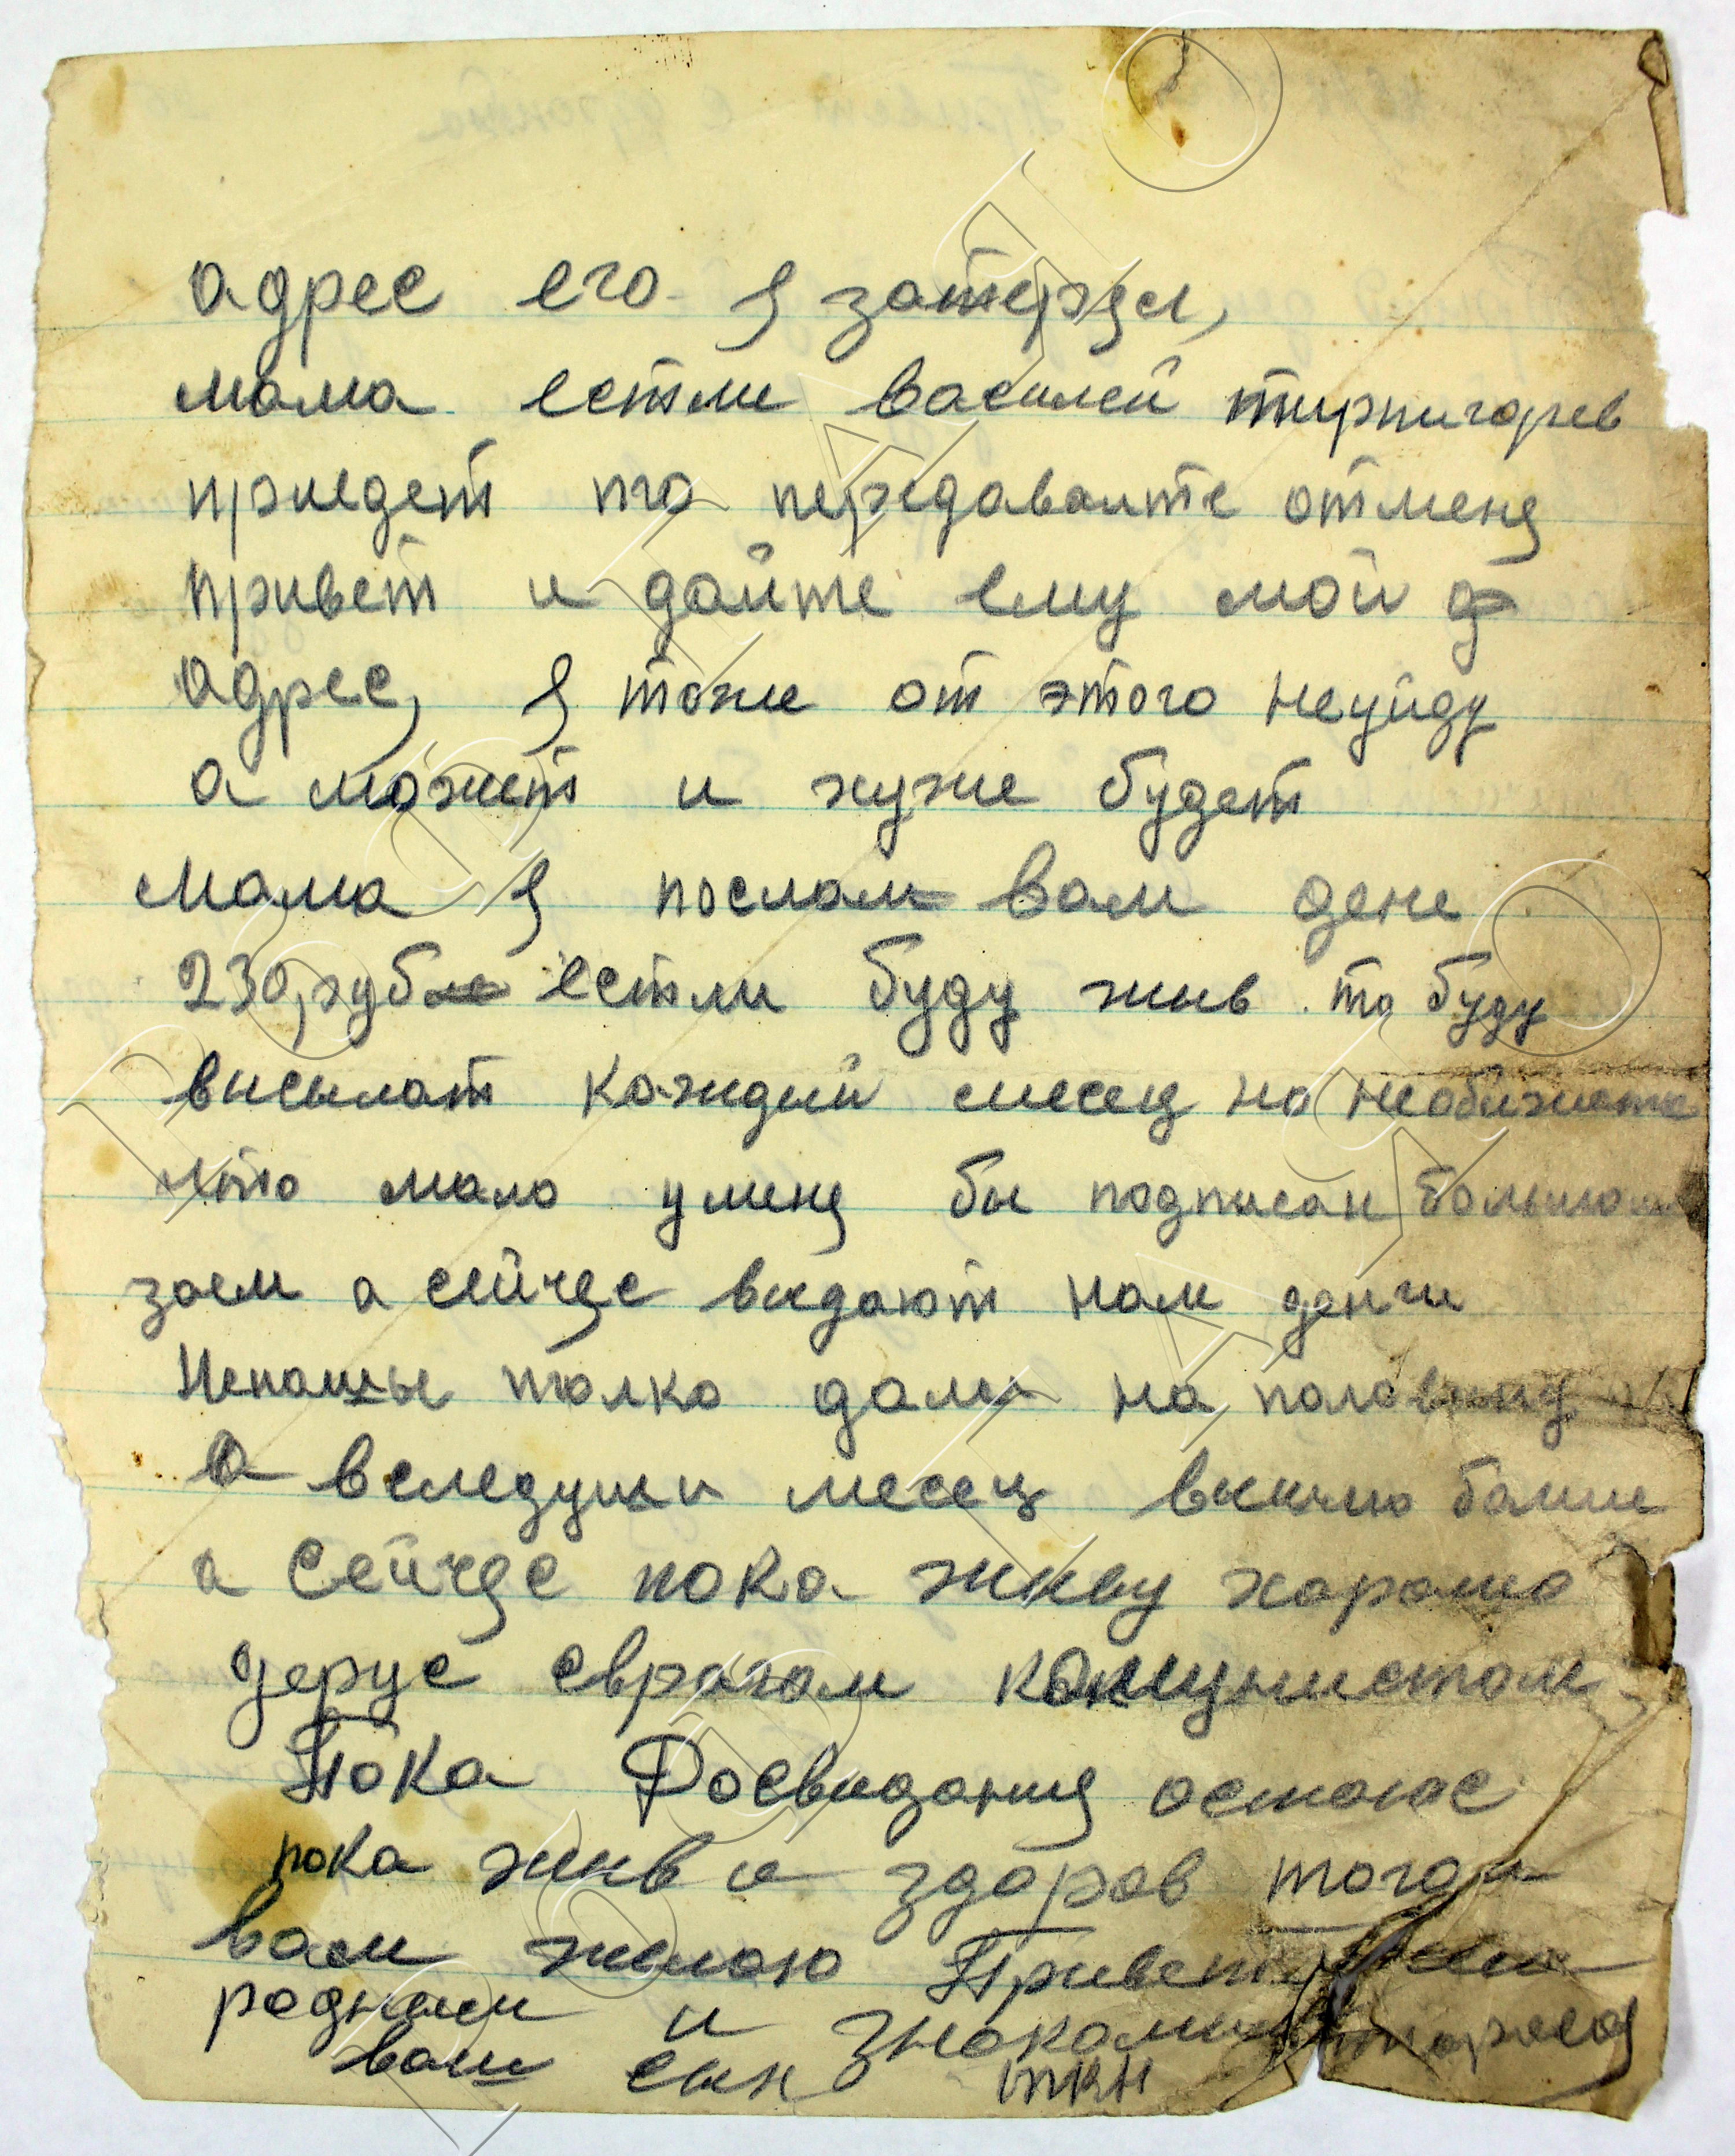 адрес его я затерял,
мама естли василей тирпигорев
приедет то передаваите отменя
привет и дайте ему мой
адрес, я тоже от этого неуйду
аможет и хуже будет
мама я послал вам дене
230 руб естли буду жив то буду
висылат каждый месец но необижаите
што мало уменя бы подписан
заем а сейчяс видают нам денги
непаины толко дали на половину
а вследущи месец вишлю болше
а Сейчяс пока живу харошо
Дерус сврагом комунистом
Пока Досвидания остаюс
пока жив и здоров того и
вам желаю Привет всем
родным и знакомим
ваш сын